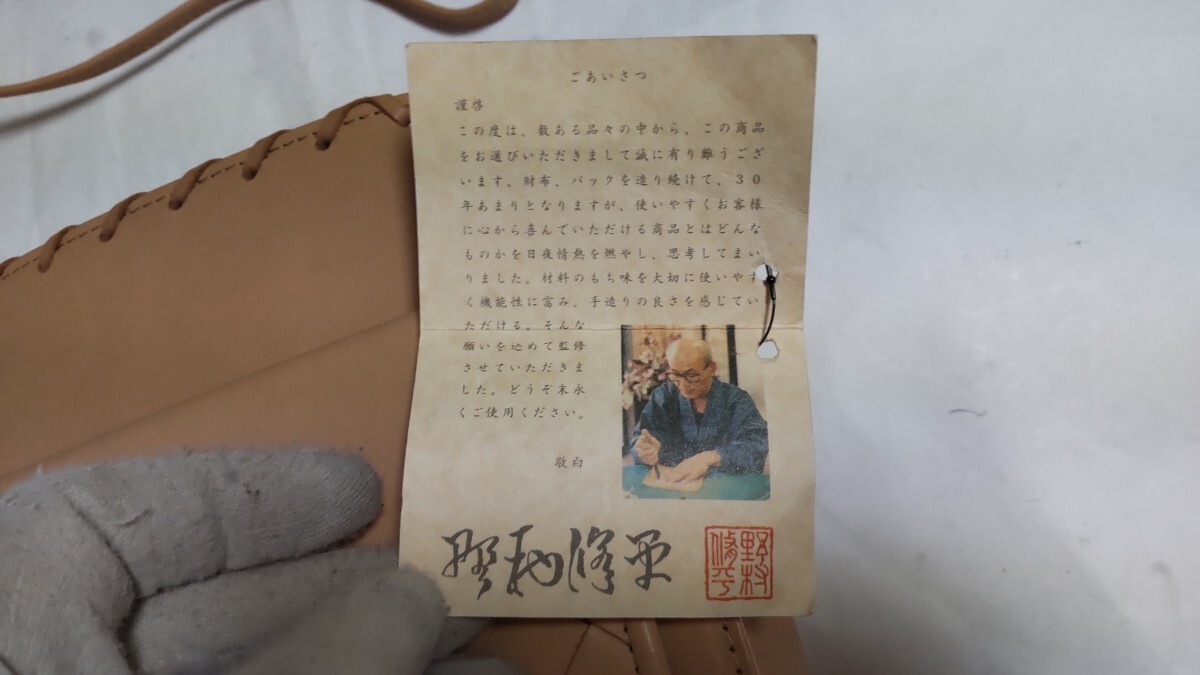 ごあいさつ
謹啓
この度は、数ある品々の中から、この商品
をお選びいただきまして誠に有り難うござ
います。財布、バックを造り続けて、30
年あまりとなりますが、使いやすくお客様
に心から喜んでいただける商品とはどんな
ものかを日夜情熱を燃やし、思考してまい
りました。材料のもち味を大切に使いやす
く機能性に富み、手造りの良さを感じてい
ただける。そんな
願いを込めて監修
させていただきま
した。どうぞ末永
くご使用ください。
敬白
野村修平
野村
修平